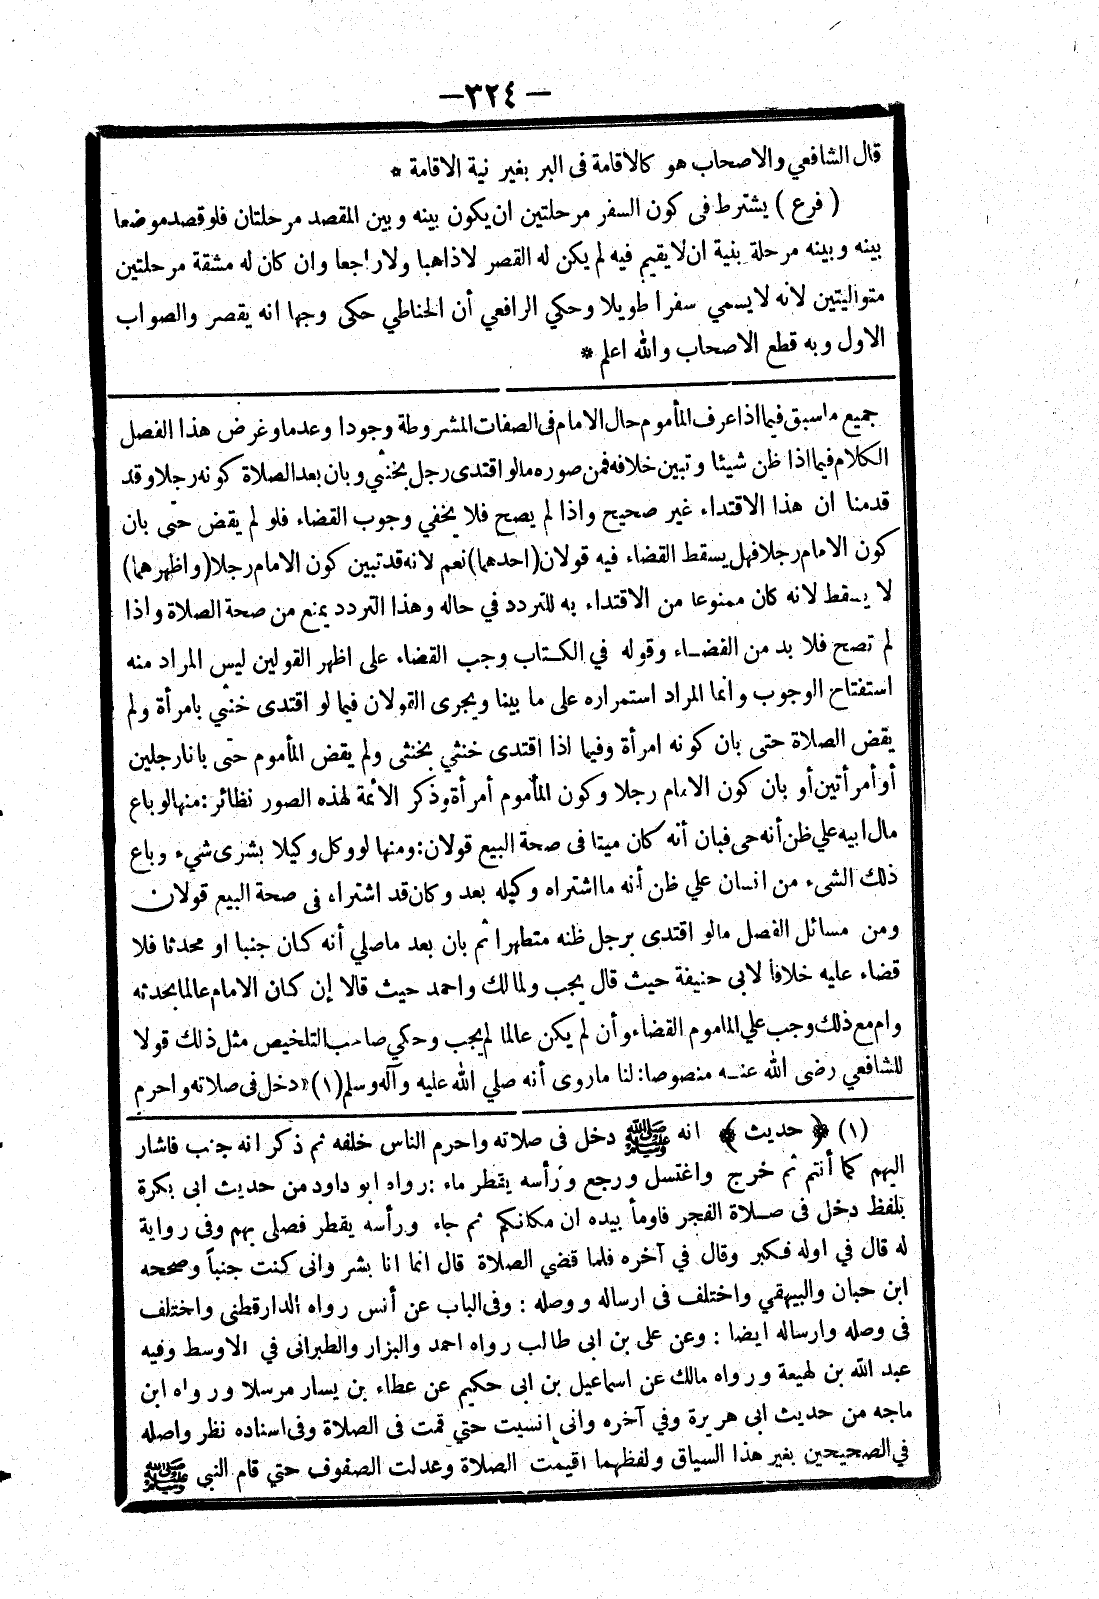 — ٣٢٤ —
قال الشافعي والاصحاب هو كالاقامة فى البر بغير نية الاقامة *
( فرع ) يشترط فى كون السفر مرحلتين ان يكون بينه وبين المقصد مرحلتان فلو قصد موضعا
بينه وبينه مرحلة بنية ان لا يقيم فيه لم يكن له القصر لا ذاهبا ولا راجعا وان كان له مشقة مرحلتين
متواليتين لانه لا يسمي سفرا طويلا وحكي الرافعي أن الحناطي حكى وجها انه يقصر والصواب
الاول وبه قطع الاصحاب والله اعلم *
جميع ماسبق فيما اذا عرف المأموم حال الامام فى الصفات المشروطة وجودا وعدما وغرض هذا الفصل
الكلام فيما اذا ظن شيئا وتبين خلافه فمن صوره مالو اقتدى رجل بخنثي وبان بعد الصلاة كونه رجلا وقد
قدمنا ان هذا الاقتداء غير صحيح واذا لم يصح فلا يخفي وجوب القضاء فلو لم يقض حتى بان
كون الامام رجلا فهل يسقط القضاء فيه قولان (احدهما) نعم لانه قد تبين كون الامام رجلا (واظهرهما)
لا يسقط لانه كان ممنوعا من الاقتداء به للتردد في حاله وهذا التردد يمنع من صحة الصلاة واذا
لم تصح فلا بد من القضـاء وقوله في الكتاب وجب القضاء على اظهر القولين ليس المراد منه
استفتاح الوجوب وانما المراد استمراره على ما بينا ويجرى القولان فيما لو اقتدى خنثي بامرأة ولم
يقض الصلاة حتى بان كونه امرأة وفيما اذا اقتدى خنثي بخنثى ولم يقض المأموم حتى بانا رجلين
أو أمرأتين أو بان كون الامام رجلا وكون المأموم أمرأة وذكر الائمة لهذه الصور نظائر : منها لو باع
مال ابيه علي ظن أنه حى فبان أنه كان ميتا فى صحة البيع قولان : ومنها لو وكل وكيلا بشرى شيء وباع
ذلك الشىء من انسان علي ظن أنه ما اشتراه وكيله بعد وكان قد اشتراه فى صحة البيع قولان
ومن مسائل الفصل مالو اقتدى برجل ظنه متطهرا ثم بان بعد ماصلي أنه كان جنبا او محدثا فلا
قضاء عليه خلافا لابى حنيفة حيث قال يجب ولمالك واحمد حيث قالا إن كان الامام عالما بحدثه
وام مع ذلك وجب علي الماموم القضاء وأن لم يكن عالما لم يجب وحكي صاحب التلخيص مثل ذلك قولا
للشافعي رضى الله عنـه منصوصا : لنا ماروى أنه صلي الله عليه وآله وسلم (١) « دخل فى صلاته واحرم
(١) ﴿ حديث ﴾ انه ﷺ دخل فى صلاته واحرم الناس خلفه ثم ذكر انه جنب فاشار
اليهم كما أنتم ثم خرج واغتسل ورجع ورأسه يقطر ماء : رواه ابو داود من حديث ابى بكرة
بلفظ دخل فى صـلاة الفجر فاومأ بيده ان مكانكم ثم جاء ورأسه يقطر فصلى بهم وفى رواية
له قال في اوله فكبر وقال في آخره فلما قضي الصلاة قال انما انا بشر وانى كنت جنباً وصححه
ابن حبان والبيهقي واختلف فى ارساله ووصله : وفى الباب عن أنس رواه الدارقطنى واختلف
فى وصله وارساله ايضا : وعن على بن ابى طالب رواه احمد والبزار والطبرانى في الاوسط وفيه
عبد الله بن لهيعة ورواه مالك عن اسماعيل بن ابى حكيم عن عطاء بن يسار مرسلا ورواه ابن
ماجه من حديث ابى هريرة وفي آخره وانى انسيت حتي قمت فى الصلاة وفى اسناده نظر واصله
في الصحيحين بغير هذا السياق ولفظهما اقيمت الصلاة وعدلت الصفوف حتي قام النبي ﷺ